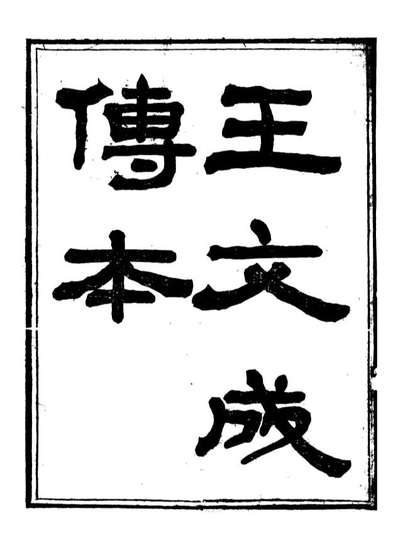 王文成
傳本